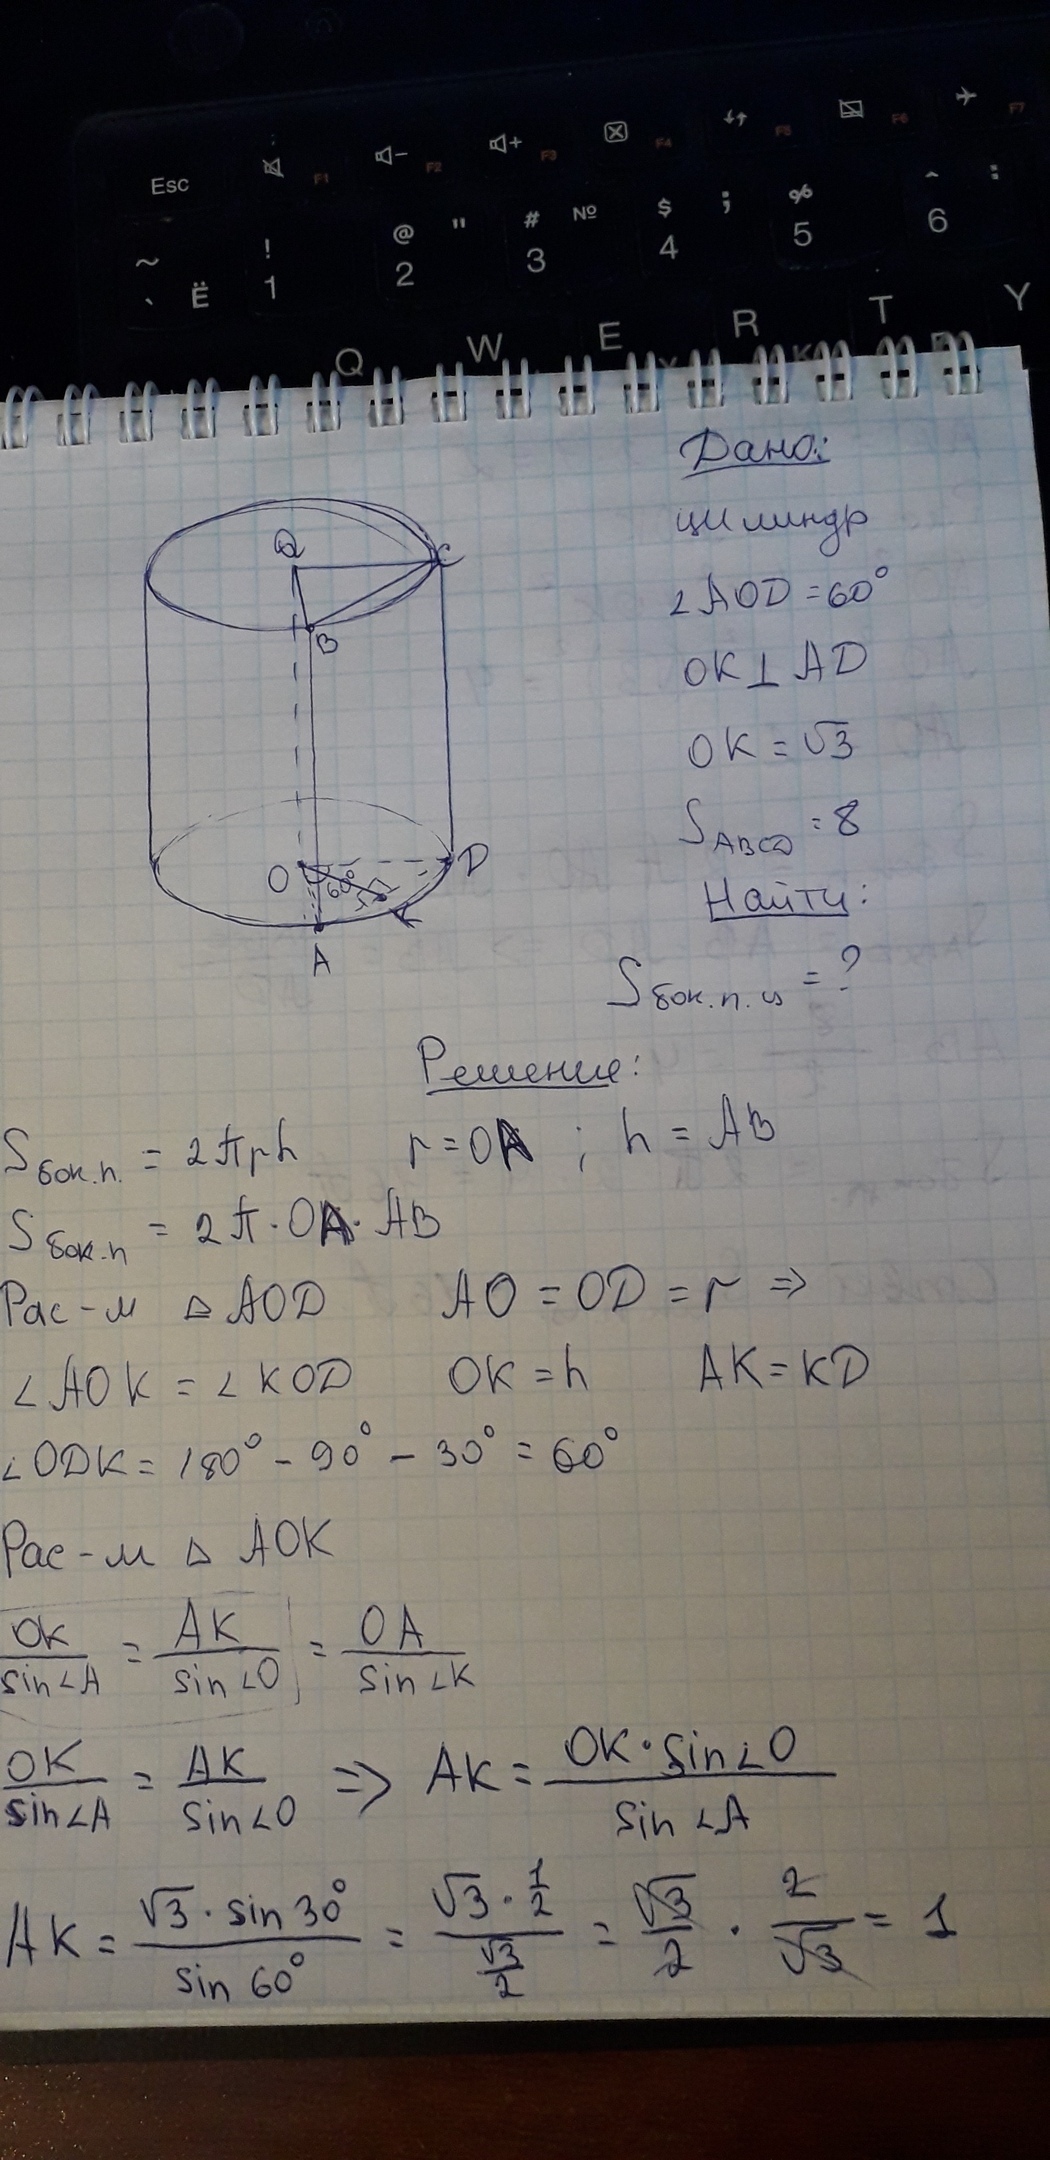 Esc F1 F2 F3 F4 F5 F6 F7
~ ` Ё ! 1 @ " 2 # № 3 $ ; 4 % 5 ^ : 6
Q W E R T Y
Дано:
цилиндр
∠AOD = 60°
OK ⊥ AD
OK = √3
S_ABCD = 8
Найти:
S_бок.п.ц = ?
Q C
B
O 60° D
K
A
Решение:
S_бок.п. = 2πrh r = OA ; h = AB
S_бок.п = 2π · OA · AB
Рас-м △ AOD AO = OD = r ⇒
∠AOK = ∠KOD OK = h AK = KD
∠ODK = 180° - 90° - 30° = 60°
Рас-м △ AOK
OK/sin∠A = AK/sin∠O = OA/sin∠K
OK/sin∠A = AK/sin∠O ⇒ AK = OK · sin∠O / sin∠A
AK = √3 · sin 30° / sin 60° = √3 · 1/2 / √3/2 = √3/2 · 2/√3 = 1